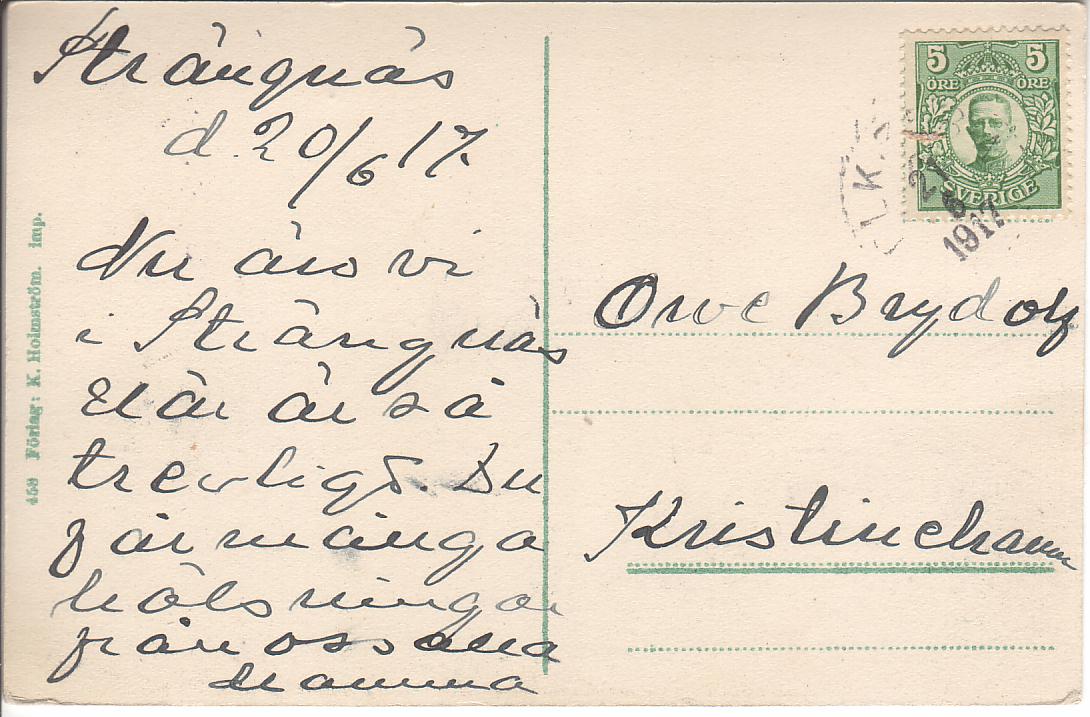 Strängnäs
d. 20/6 17.
Nu äro vi
i Strängnäs
Här är så
trevligt. Du
får många
hälsningar
från oss alla
Mamma
459 Förlag: K. Holmström. imp.
5 5
ÖRE ÖRE
SVERIGE
LK.
21
6
1917
Orve Brydolf
Kristinehamn